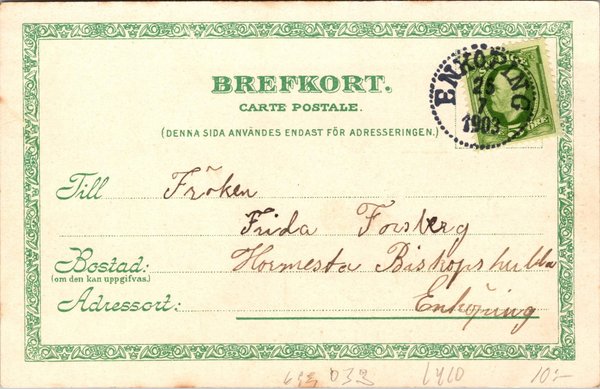 BREFKORT.
CARTE POSTALE.
(DENNA SIDA ANVÄNDES ENDAST FÖR ADRESSERINGEN.)
ENKÖPING
25
7
1903
Till Fröken
Frida Forsberg
Bostad: Hormesta Biskopskulla
(om den kan uppgifvas.)
Adressort: Enköping
033 1910 10:-